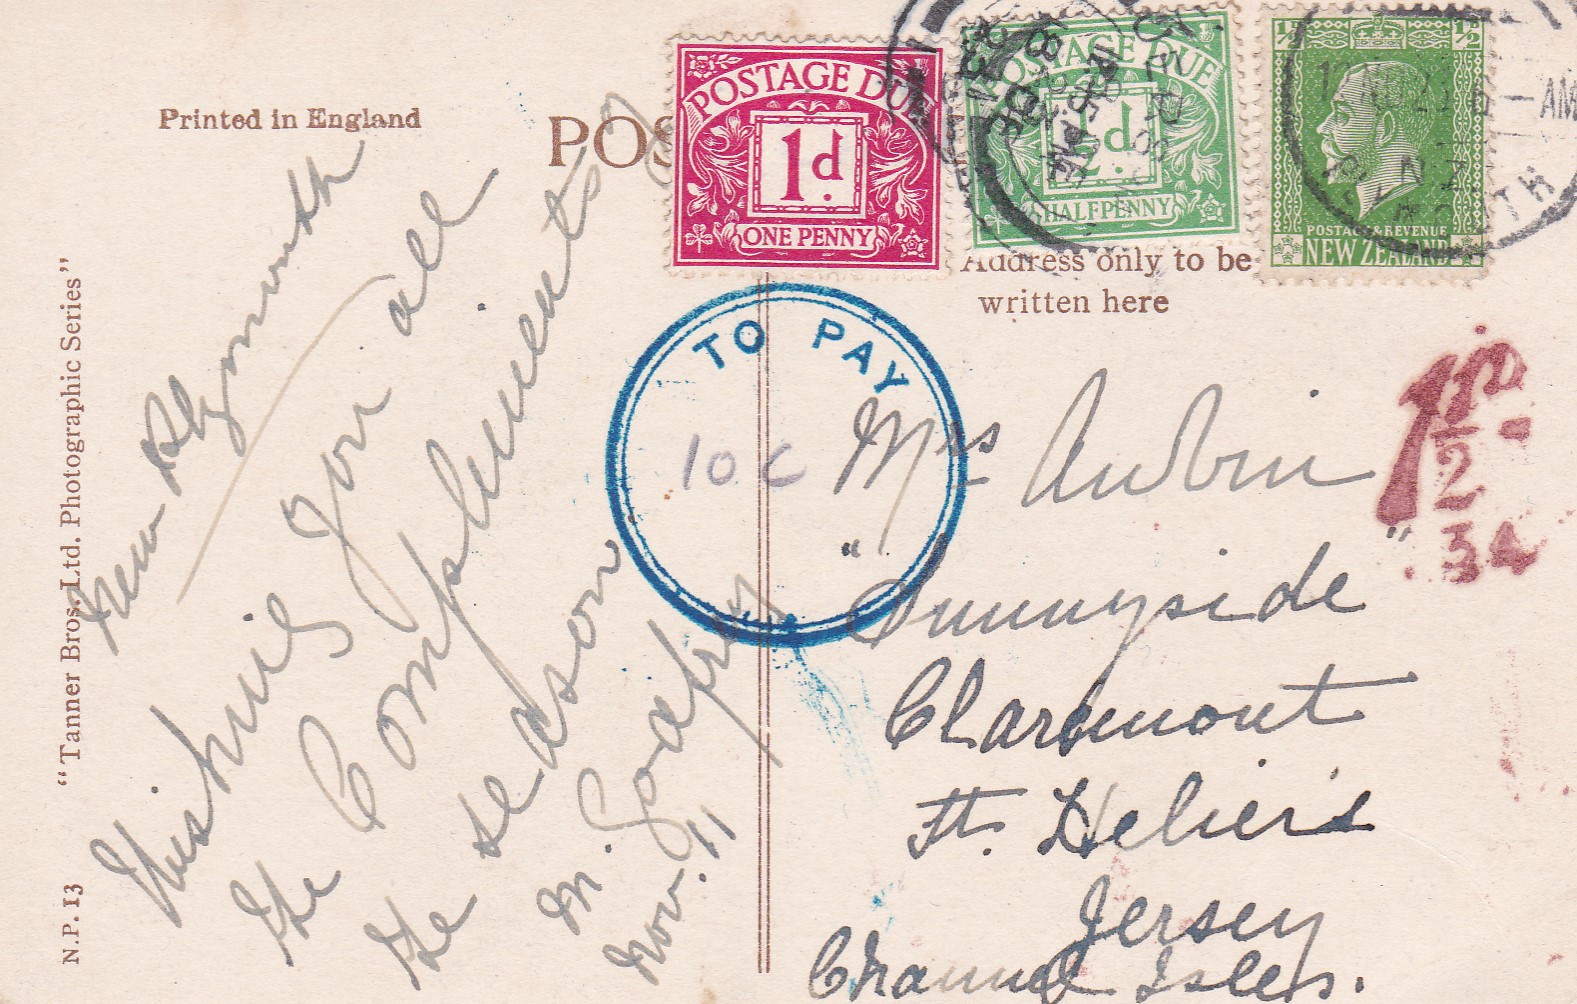 Printed in England
POS
POSTAGE DUE
1d
ONE PENNY
POSTAGE DUE
½d.
HALFPENNY
½ ½
POSTAGE & REVENUE
NEW ZEALAND
AM
N.Z.
Address only to be
written here
TO PAY
10 C
1½D.
34
New Plymouth
Wishing you all
the Compliments of
the season
M. Godfrey
Nov. 11
Mrs Aubin
"Sunnyside"
Claremont
St. Helier's
Jersey
Channel Isles.
"Tanner Bros. Ltd. Photographic Series"
N.P. 13